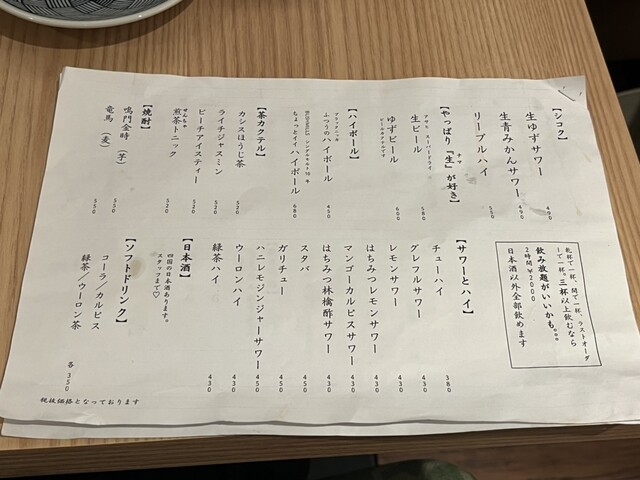 【シコク】
生ゆずサワー 490
生青みかんサワー 490
リーブルハイ 550
【やっぱり『生』が好き】
ナマ
アサヒ スーパードライ
生ビール 580
ゆずビール 600
【ハイボール】
ふつうのハイボール 450
ちょっとイイハイボール 680
【茶カクテル】
カシスほうじ茶 520
ライチジャスミン 520
ピーチアイスティー 520
せんちゃ
煎茶トニック 520
【焼酎】
鳴門金時（芋） 550
竜馬（麦） 550
乾杯で一杯、間で一杯、ラストオーダーで一杯。三杯以上飲むなら
飲み放題がいいかも。。。
2時間￥2000
日本酒以外全部飲めます
【サワーとハイ】
チューハイ 380
グレフルサワー 430
レモンサワー 430
はちみつレモンサワー 430
マンゴーカルピスサワー 430
はちみつ林檎酢サワー 430
スタバ 450
ガリチュー 450
ハニレモジンジャーサワー 450
ウーロンハイ 430
緑茶ハイ 430
【日本酒】
四国の日本酒あります。
スタッフまで♡
【ソフトドリンク】
コーラ／カルピス
緑茶／ウーロン茶 各350
税抜価格となっております